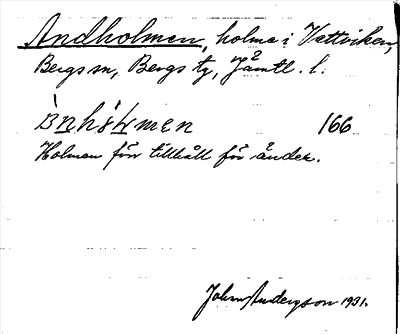 Andholmen, holme i Vattviken,
Bergs sn, Bergs tg, Jämtl. l.
166
Holmen för tillhåll för änder.
Johan Anderson 1931.